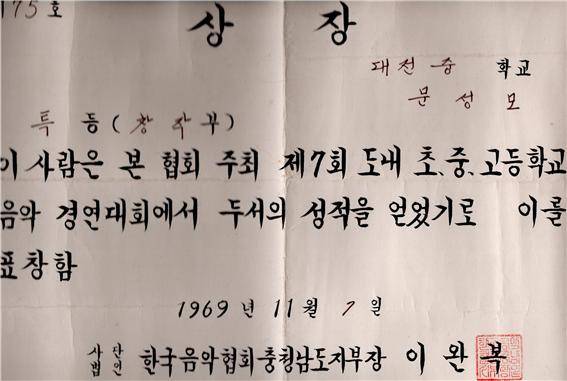 175호
상 장
대전중 학교
문성모
특등(창작부)
이 사람은 본 협회 주최 제7회 도내 초、중、고등학교
음악 경연대회에서 두서의 성적을 얻었기로 이를
표창함
1969년 11월 7일
사단법인 한국음악협회충청남도지부장 이완복